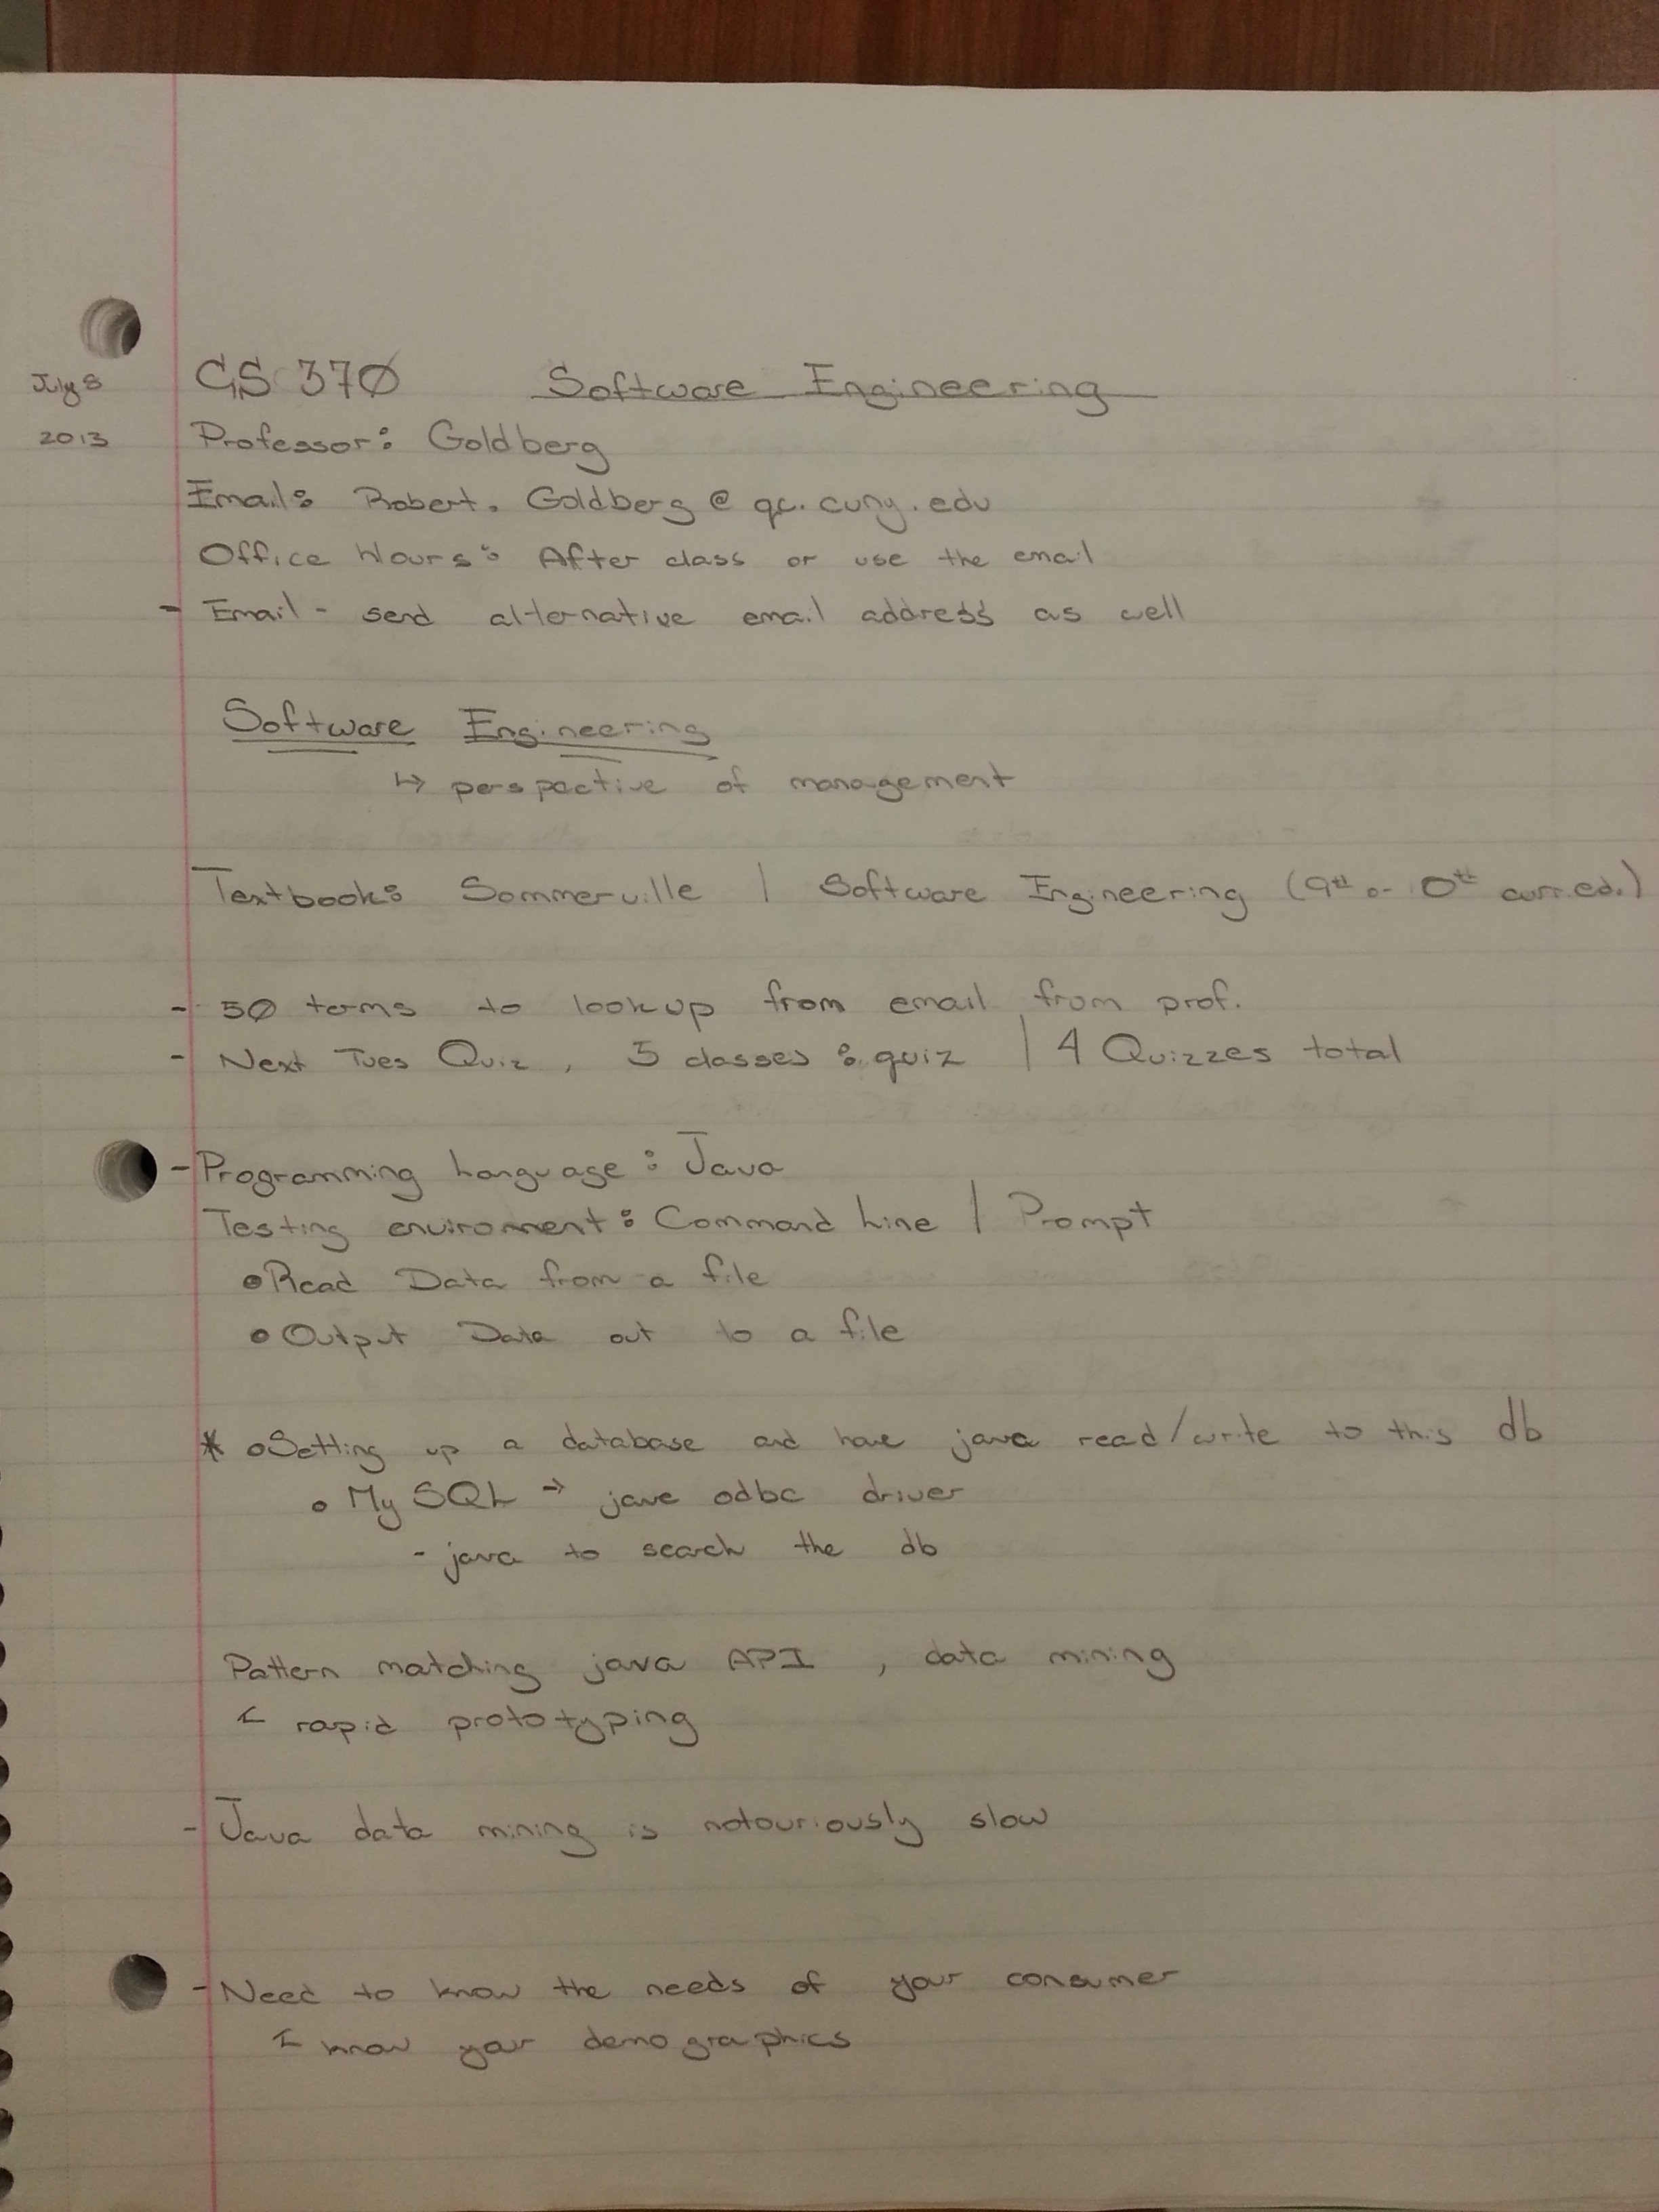 July 8
2013
CS 370 Software Engineering
Professor: Goldberg
Email: Robert.Goldberg@qc.cuny.edu
Office Hours: After class or use the email
- Email - send alternative email address as well
Software Engineering
↳ perspective of management
Textbook: Sommerville | Software Engineering (9th or 10th curr. ed.)
- 50 terms to lookup from email from prof.
- Next Tues Quiz, 5 classes : quiz | 4 Quizzes total
- Programming Language: Java
Testing enviroment: Command Line | Prompt
• Read Data from a file
• Output Data out to a file
* • Setting up a database and have java read/write to this db
• My SQL → java odbc driver
- java to search the db
Pattern matching java API, data mining
rapid prototyping
- Java data mining is notouriously slow
- Need to know the needs of your consumer
know your demographics